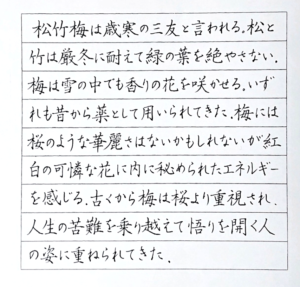 松竹梅は歳寒の三友と言われる.松と
竹は厳冬に耐えて緑の葉を絶やさない.
梅は雪の中でも香りの花を咲かせる.いず
れも昔から薬として用いられてきた.梅には
桜のような華麗さはないかもしれないが紅
白の可憐な花に内に秘められたエネルギー
を感じる.古くから梅は桜より重視され.
人生の苦難を乗り越えて悟りを開く人
の姿に重ねられてきた.